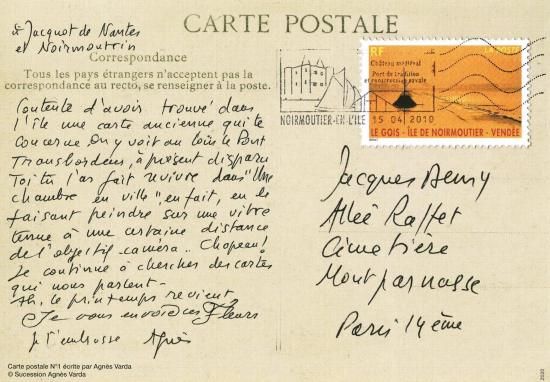 CARTE POSTALE
à Jacquot de Nantes
et Noirmoutrin
Correspondance
Tous les pays étrangers n'acceptent pas la
correspondance au recto, se renseigner à la poste.
Contente d'avoir trouvé dans
l'île une carte ancienne qui te
concerne On y voit au loin le Pont
Transbordeur, à présent disparu
Toi tu l'as fait revivre dans "Une
chambre en ville", en fait, en le
faisant peindre sur une vitre
tenue à une certaine distance
de l'objectif-caméra.. Chapeau!
Je continue à chercher des cartes
qui nous parlent -
Ah, le printemps revient
Je vous envoie des Fleurs
Je t'embrasse Agnès
Château médiéval
Port de tradition
et construction navale
NOIRMOUTIER-EN-L'ILE
15 04 2010
RF
LA POSTE
LE GOIS - ÎLE DE NOIRMOUTIER - VENDÉE
Jacques Demy
Allée Raffet
Cimetière
Montparnasse
Paris 14ème
Carte postale N°1 écrite par Agnès Varda
© Sucession Agnès Varda
2020